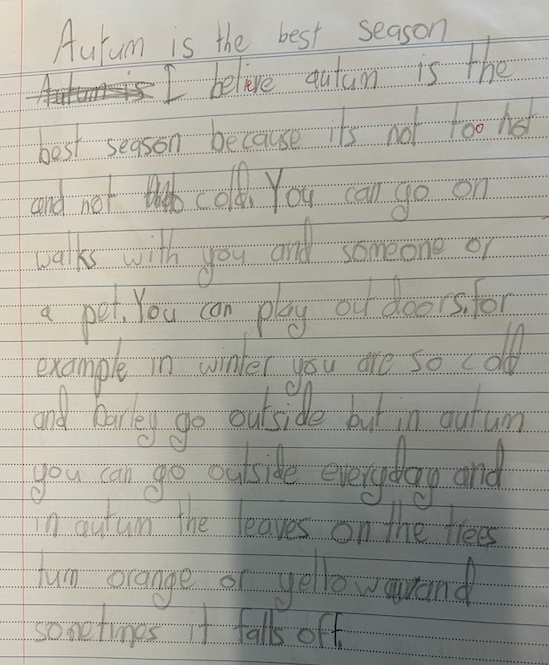 Autum is the best season
I belive autum is the
best season because its not too hot
and not cold. You can go on
walks with you and someone or
a pet. You can play out doors. for
example in winter you are so cold
and barley go outside but in autum
you can go outside everyday and
in autum the leaves on the trees
turn orange or yellow and
sometimes it falls off.